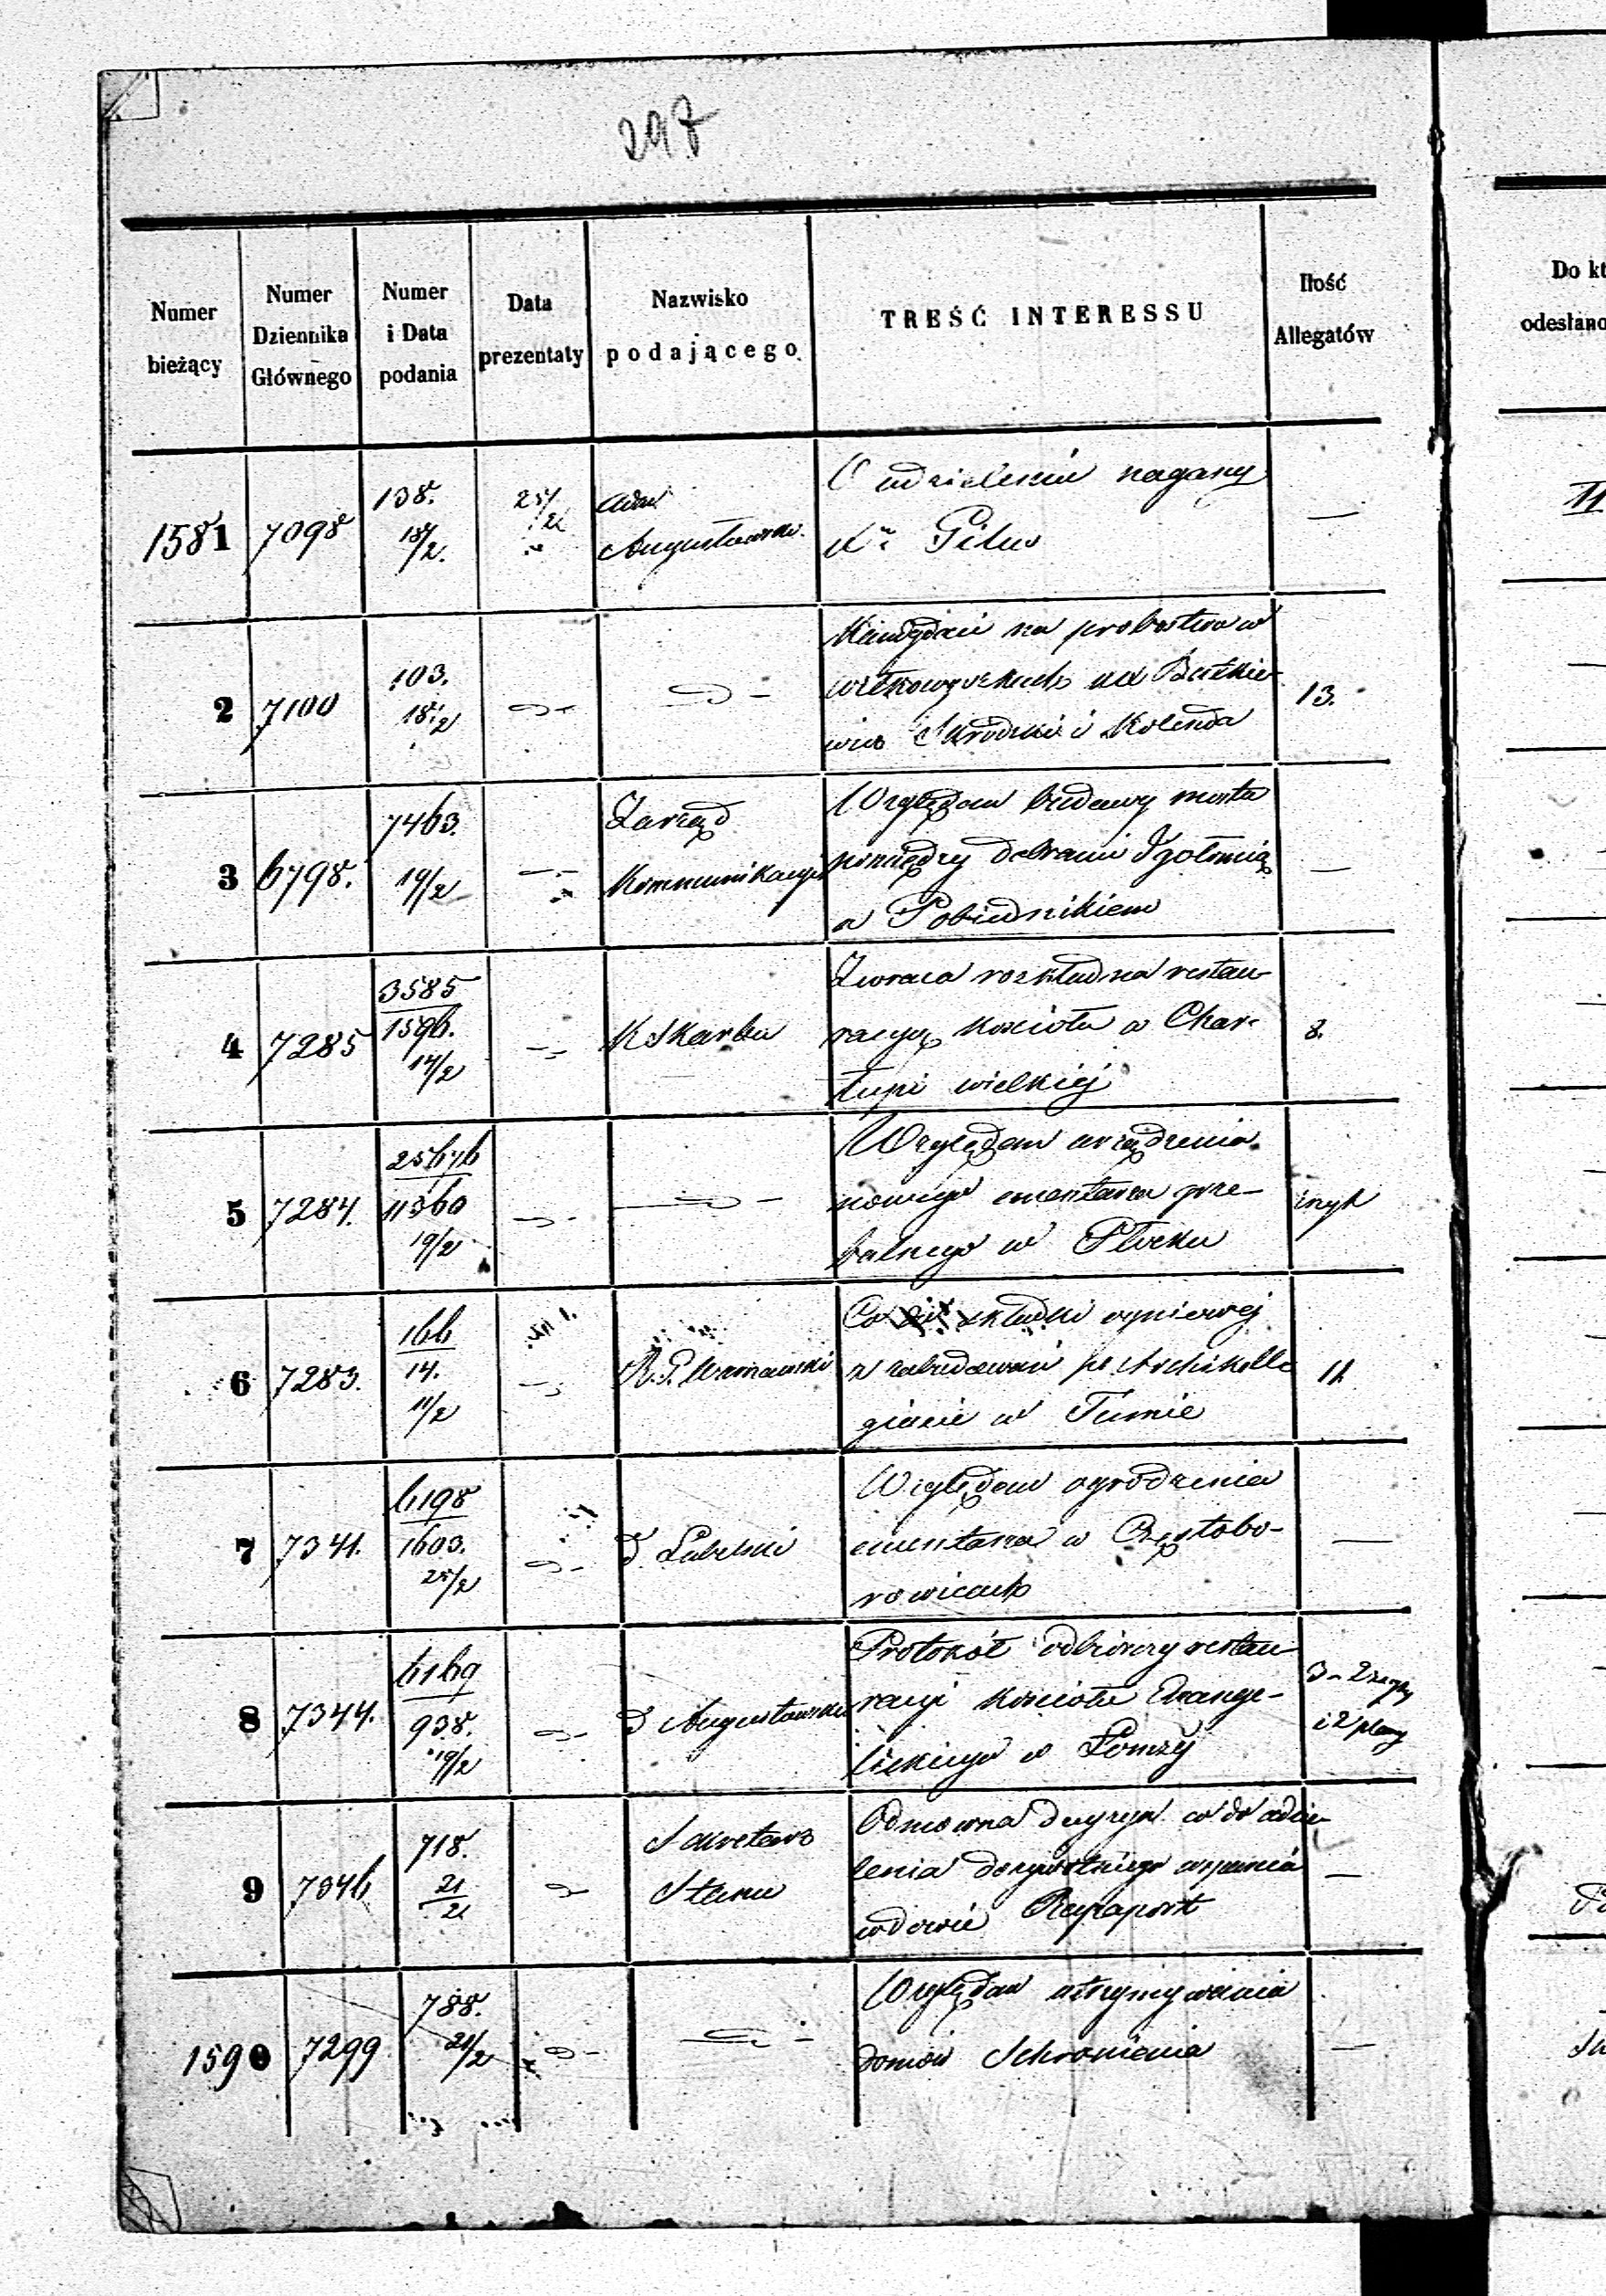 297
Numer bieżący
Numer Dziennika Głównego
Numer i Data podania
Data prezentaty
Nazwisko podającego
TREŚĆ INTERESSU
Ilość Allegatów
Do kt
odesłano
1581 7098 138. 18/2. 25/2
Augustowski.
O udzieleniu nagany
Xu Pilus
—
2 7100 103. 18/2
na probostwo w
Skrodzki i Kolenda
13.
3 6798. 7463. 19/2
Zarząd
Kommunikacyi
Względem budowy mostu
pomiędzy dobrami Igołomią
a Pobiednikiem
—
4 7285 3585 1596. 14/2
K Skarbu
Zwraca rozkład na restau-
racyę kościoła w Char-
łupi wielkiej
8.
5 7284. 25646 11360 19/2
Względem urządzenia
nowego cmentarza grze-
balnego w Płocku
6 7283. 166 14. 11/2
Co do składki ogniowej
z zabudowań po Archikolle
giacie w Tumie
11
7 7341. 6198 1603. 25/2
D Lubelski
Względem ogrodzenia
cmentarza w Częstobo-
rowicach
—
8 7344. 6169 938. 19/2
D Augustowski
Protokół odbiorczy restau-
racyi kościoła Ewange-
lickiego w Łomży
3 - 2
i 2 plany
9 7346 718. 21/2
Sekretarz
Stanu
Odmowna decyzya co do udzie-
lenia dożywotniego wsparcia
wdowie Rappaport
—
1590 7299 788. 21/2
Względem utrzymywania
domów Schronienia
—